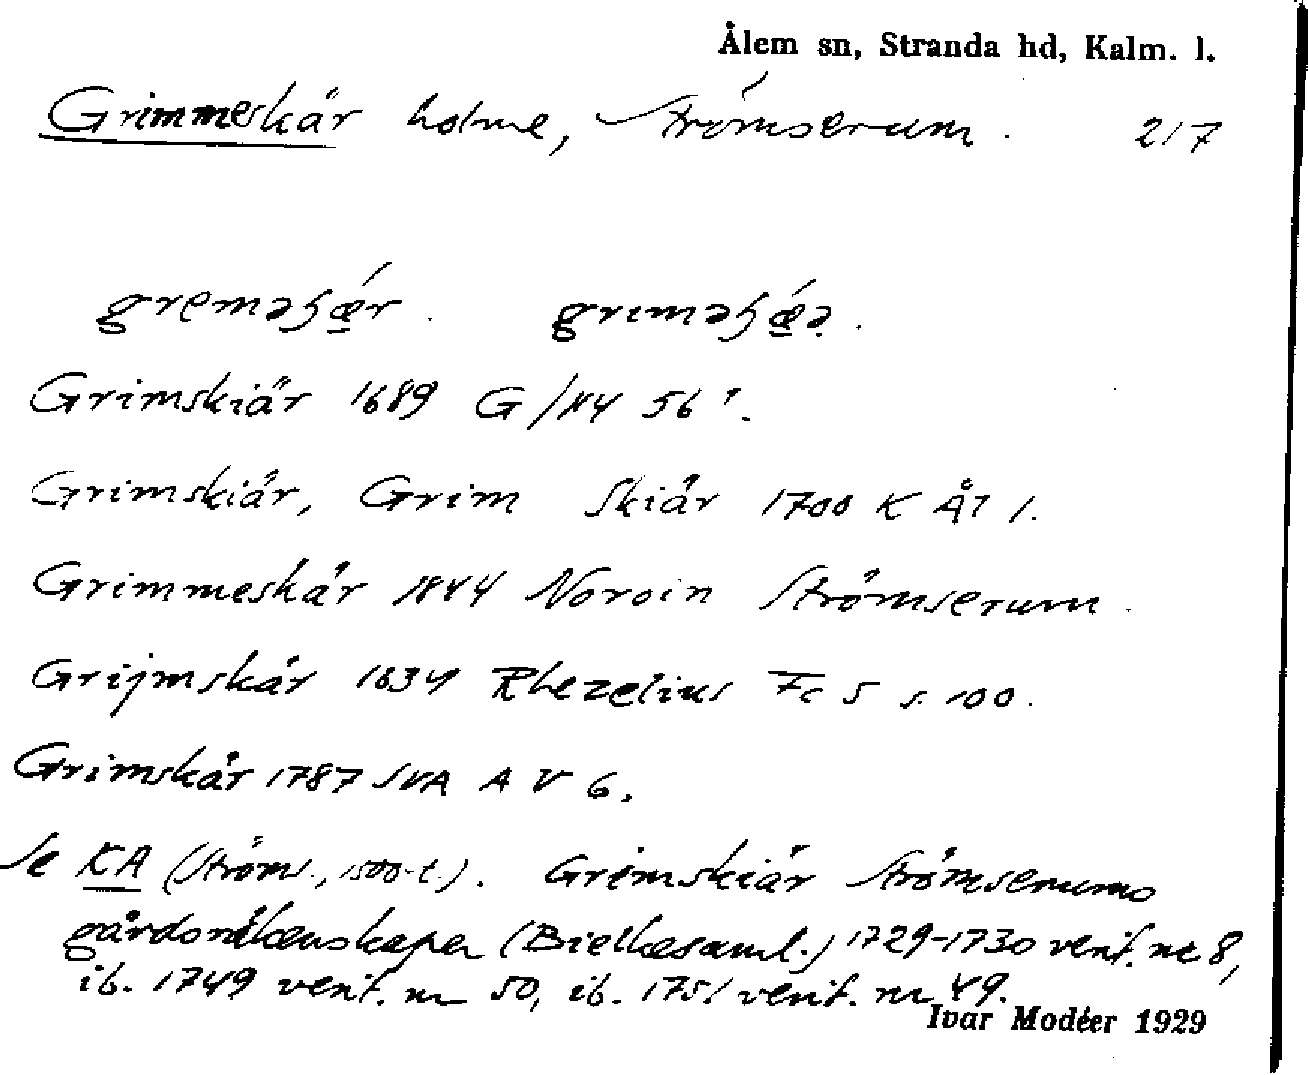 Ålem sn, Stranda hd, Kalm. l.
Grimmeskär holme, Strömserum. 217
Grimskiär 1689 G/N4 56¹.
Grimskiär, Grim Skiär 1700 K Ål 1.
Grimmeskär 1844 Noroin Strömserum.
Grijmskär 1634 Rhezelius Fc 5 s. 100.
Grimskär 1787 SVA A V 6.
Se KA (Ströms., 1500-t.). Grimskiär Strömserums
gårdsräkenskaper (Bielkesaml.) 1729-1730 verif. nr 8,
ib. 1749 verif. nr 50, ib. 1751 verif. nr 49.
Ivar Modéer 1929